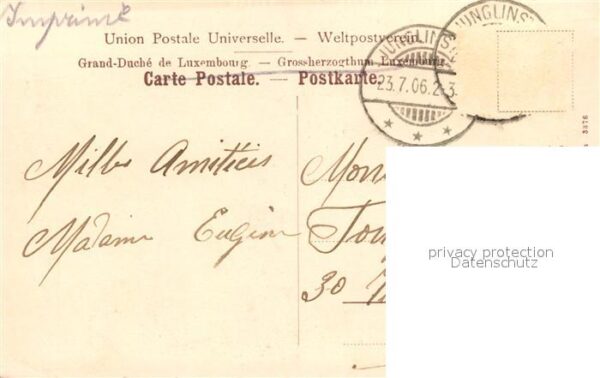 Imprimé
Union Postale Universelle. – Weltpostverein.
Grand-Duché de Luxembourg. – Grossherzogthum Luxemburg.
Carte Postale. — Postkarte.
JUNGLINS
23.7.06.2-3
JUNGLINST
3376
Mille Amitiés
Madame Eugène
30
privacy protection
Datenschutz